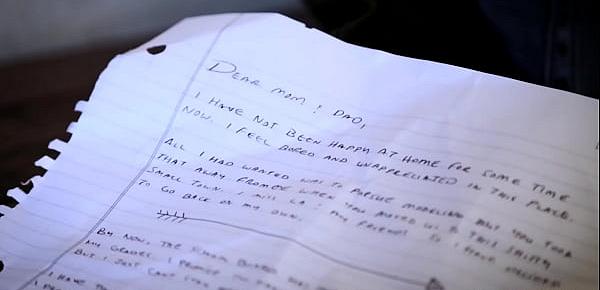 DEAR MOM & DAD,
I HAVE NOT BEEN HAPPY AT HOME FOR SOME TIME
NOW. I FEEL BORED AND UNAPPRECIATED IN THIS PLACE.
ALL I HAD WANTED WAS TO PURSUE MODELING BUT YOU TOOK
THAT AWAY FROM ME WHEN YOU MOVED US TO THIS SHITTY
SMALL TOWN. I MISS LA & MY FRIENDS SO I HAVE DECIDED
TO GO BACK ON MY OWN.
BY NOW, THE SCHOOL
MY GRADES. I PROMISE
BUT I JUST CAN'T